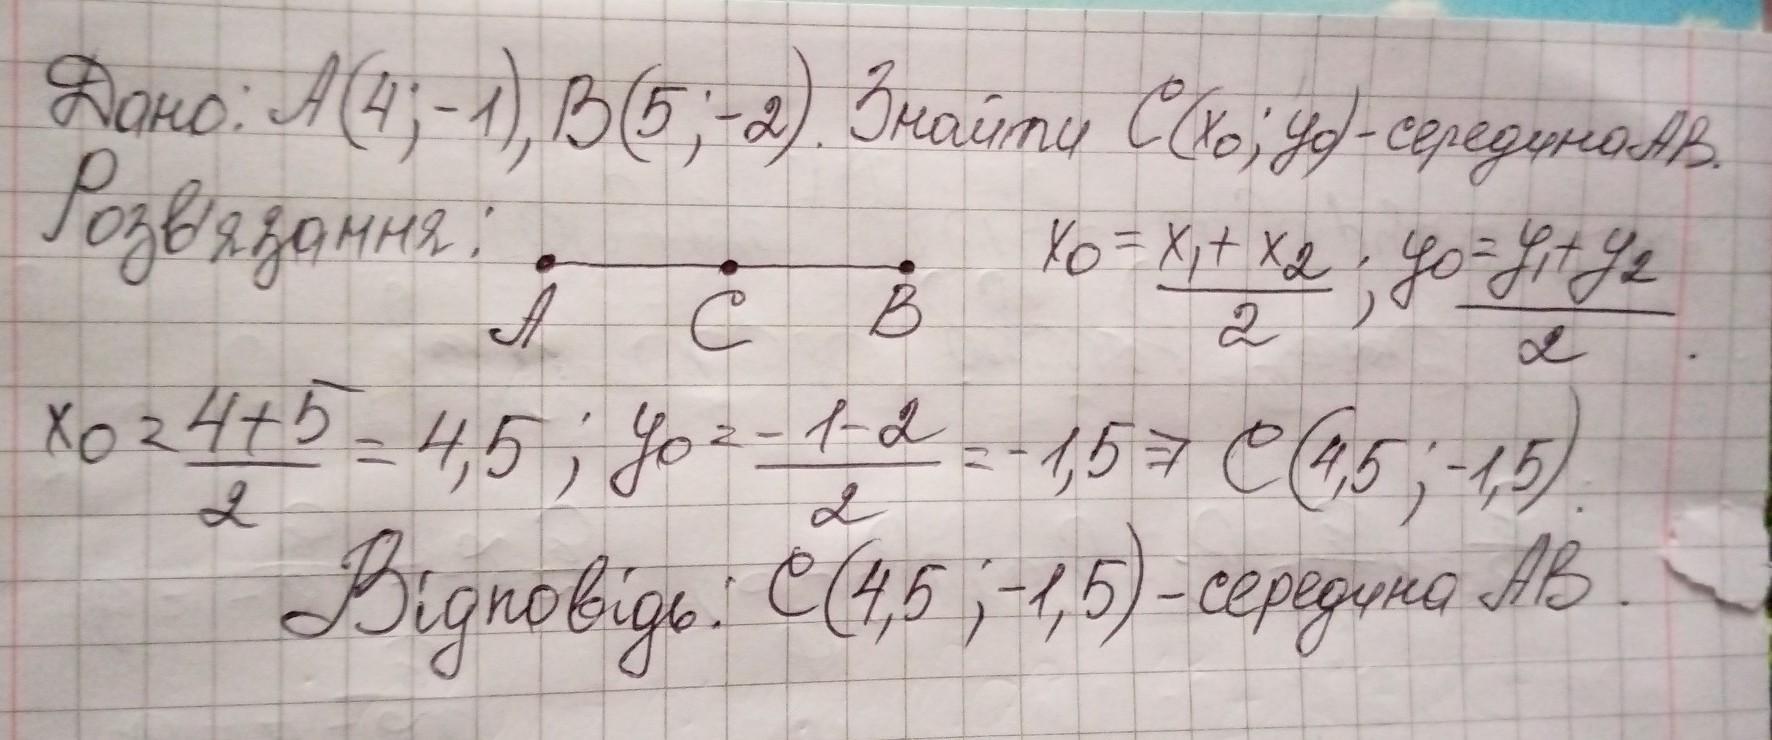 Дано: A(4;-1), B(5;-2). Знайти C(x₀; y₀)-середина AB.
Розв'язання:
A C B
x₀ = (x₁ + x₂)/2 ; y₀ = (y₁ + y₂)/2 .
x₀ = (4+5)/2 = 4,5 ; y₀ = (-1-2)/2 = -1,5 ⇒ C(4,5 ; -1,5).
Відповідь: C(4,5 ; -1,5) - середина AB.